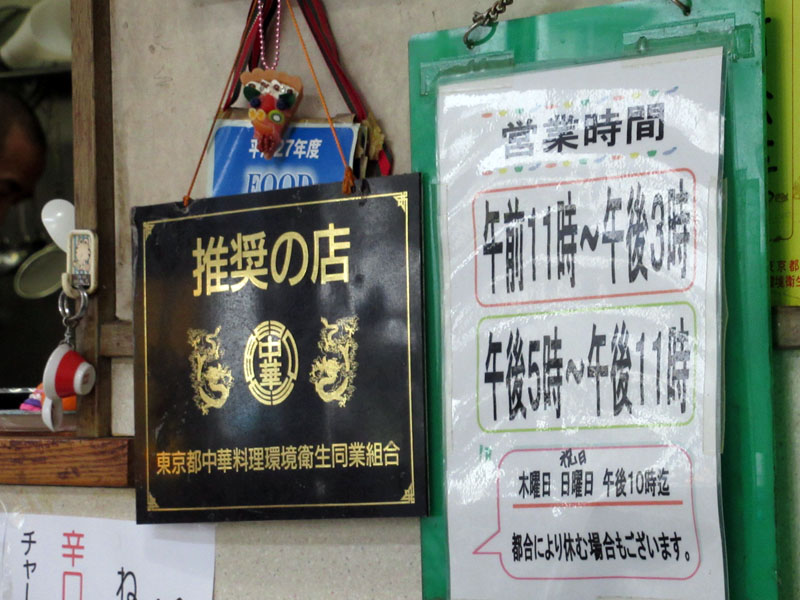 平成27年度
FOOD
推奨の店
中華
東京都中華料理環境衛生同業組合
営業時間
午前11時~午後3時
午後5時~午後11時
祝日
木曜日 日曜日 午後10時迄
都合により休む場合もございます。
辛口
チャー
ね